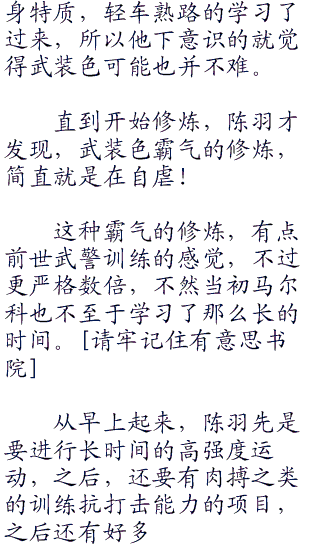 身特质，轻车熟路的学习了
过来，所以他下意识的就觉
得武装色可能也并不难。
直到开始修炼，陈羽才
发现，武装色霸气的修炼，
简直就是在自虐！
这种霸气的修炼，有点
前世武警训练的感觉，不过
更严格数倍，不然当初马尔
科也不至于学习了那么长的
时间。[请牢记住有意思书
院]
从早上起来，陈羽先是
要进行长时间的高强度运
动，之后，还要有肉搏之类
的训练抗打击能力的项目，
之后还有好多